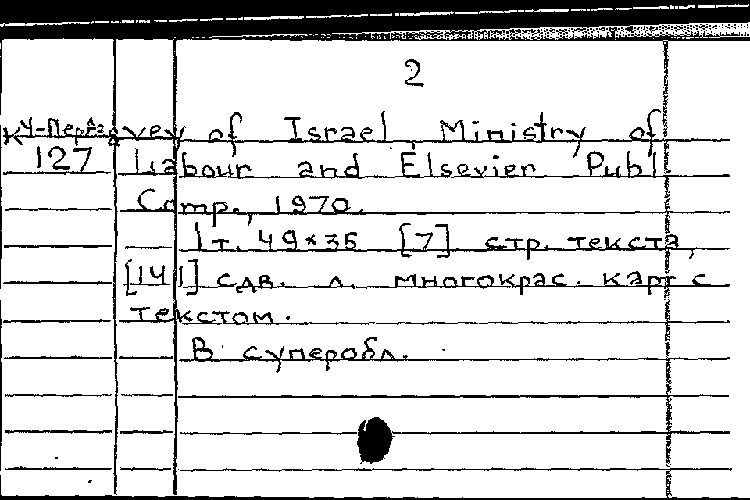 2
vey of Israel Ministry of
127 Labour and Elsevier Publ.
Comp., 1970.
1т. 49×35 [7] стр. текста,
[141] сдв. л. многокрас. карт с
текстом.
В суперобл.